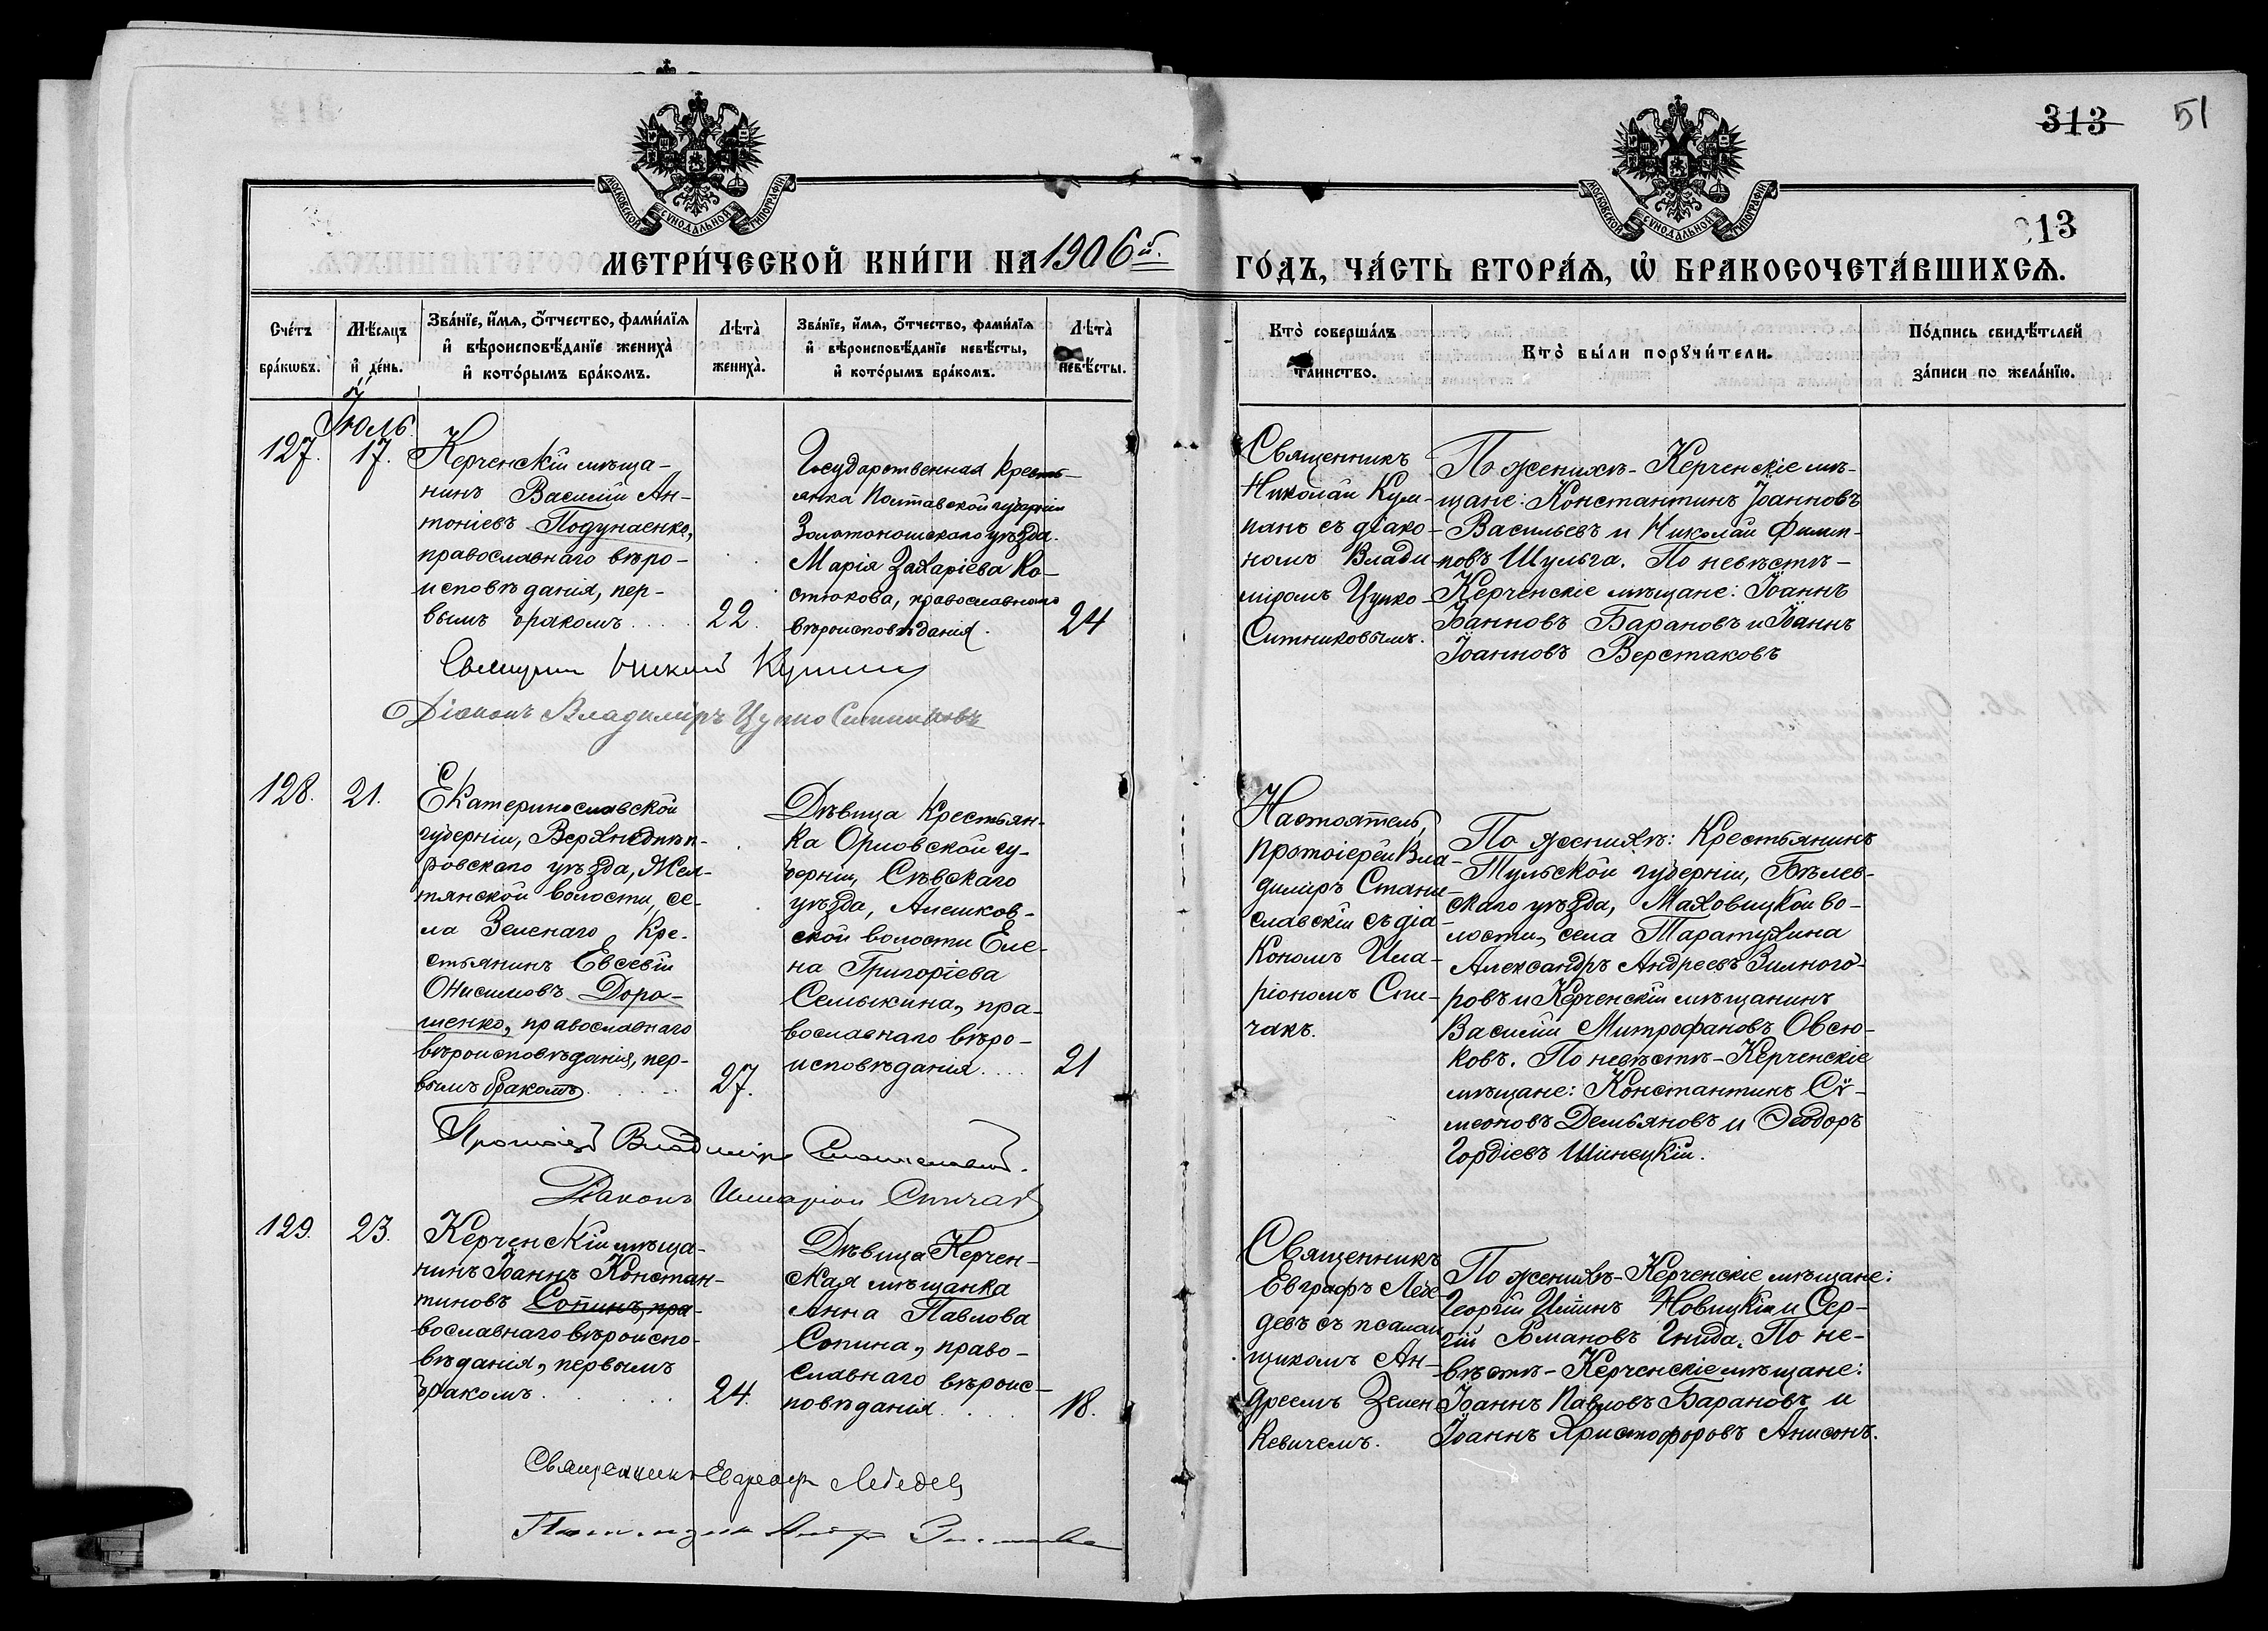 313
51
МОСКОВСКОЙ СѴНОДАЛЬНОЙ ТИПОГРАФІИ
МОСКОВСКОЙ СѴНОДАЛЬНОЙ ТИПОГРАФІИ
313
МЕТРИ́ЧЕСКОЙ КНИ́ГИ НА 1906й.
ГО́ДЪ, ЧА́СТЬ ВТОРА́Ѧ, Ѡ҆ БРАКОСОЧЕТА́ВШИХСѦ.
Сче́тъ
бра́кѡвъ.
Мѣ́сяцъ
и҆ де́нь.
Зва́нїе, и҆́мѧ, о҆́тчество, фами́лїѧ
и҆ вѣроисповѣ́данїе жениха̀
и҆ кото́рымъ бра́комъ.
Лѣта̀
жениха̀.
Зва́нїе, и҆́мѧ, о҆́тчество, фами́лїѧ
и҆ вѣроисповѣ́данїе невѣ́сты,
и҆ кото́рымъ бра́комъ.
Лѣта̀
невѣ́сты.
Кто̀ соверша́лъ
та́инство.
Кто̀ бы́ли порꙋчи́тели.
По́дпись свидѣ́телей
за́писи по жела́нїю.
Іюль.
127.
17.
Керченскій мѣща-
нинъ Василій Ан-
тоніевъ Подунаенко,
православнаго вѣро-
исповѣданія, пер-
вымъ бракомъ....
22.
Государственная кресть-
янка Полтавской губерніи
Золотоношскаго уѣзда
Марія Захаріева Ко-
стюкова, православнаго
вѣроисповѣданія.
24
Священникъ
Николай Кум-
панъ съ діако-
номъ Влади-
міромъ Цупко-
Ситниковымъ.
По женихѣ-Керченскіе мѣ-
щане: Константинъ Іоанновъ
Васильевъ и Николай Филип-
повъ Шульга. По невѣстѣ-
Керченскіе мѣщане: Іоаннъ
Іоанновъ Барановъ и Іоаннъ
Іоанновъ Верстаковъ
Діаконъ Владиміръ Цупко Ситниковъ
128.
21.
Екатеринославской
губерніи, Верхнеднѣп-
ровскаго уѣзда, Жел-
тянской волости, се-
ла Зеленаго, Кре-
стьянинъ Евсевій
Онисимовъ Доро-
шенко, православнаго
вѣроисповѣданія, пер-
вымъ бракомъ.....
27.
Дѣвица Крестьян-
ка Орловской гу-
берніи, Сѣвскаго
уѣзда, Алешков-
ской волости Еле-
на Григоріева
Семыкина, пра-
вославнаго вѣро-
исповѣданія....
21
Настоятель,
протоіерей Вла-
диміръ Стани-
славскій съ діа-
кономъ Ила-
ріономъ Спи-
чакъ.
По женихѣ: Крестьянинъ
Тульской губерніи, Бѣлев-
скаго уѣзда, Маховицкой во-
лости, села Таратухина
Александръ Андреевъ Зимного-
ровъ и Керченскій мѣщанинъ
Василій Митрофановъ Овсю-
ковъ. По невѣстѣ-Керченскіе
мѣщане: Константинъ Сѵ-
меоновъ Демьяновъ и Ѳеодоръ
Гордіевъ Шинецкій.
Протоіерей Владиміръ Станиславскій.
Діаконъ Иларіон Спичак
129.
23.
Керченскій мѣща-
нинъ Іоаннъ Констан-
тиновъ Сопинъ, пра-
вославнаго вѣроиспо-
вѣданія, первымъ
бракомъ.....
24.
Дѣвица Керчен-
ская мѣщанка
Анна Павлова
Сопина, право-
славнаго вѣроис-
повѣданія....
18.
Священникъ
Евграфъ Лебе-
девъ съ псалом-
щикомъ Ан-
дреемъ Зелен-
кевичемъ.
По женихѣ-Керченскіе мѣщане:
Георгій Новицкій и Сер-
гій Романовъ Гнида. По не-
вѣстѣ-Керченскіе мѣщане:
Іоаннъ Павловъ Барановъ и
Іоаннъ Христофоровъ Анисонъ.
Священникъ Евграф Лебедев